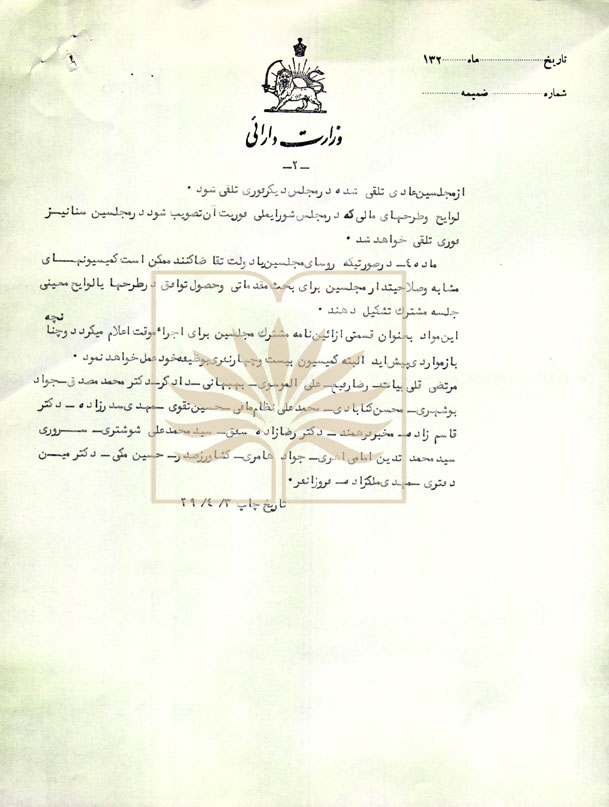 تاریخ ........ ماه ........ ۱۳۲
شماره ........ ضمیمه ........
وزارت دارائی
ـ۲ـ
ازمجلسین عادی تلقی شده درمجلس دیگرفوری تلقی شود ۰
لوایح وطرحهای مالی که درمجلس شورایملی فوریت آن تصویب شود درمجلسین سنا نیز
فوری تلقی خواهد شد ۰
ماده ٤ـ درصورتیکه روسای مجلسین یادولت تقاضاکنند ممکن است کمیسیونهای
مشابه وصلاحیتدار مجلسین برای بحث مقدماتی وحصول توافق درطرحها یالوایح معینی
جلسه مشترك تشکیل دهند ۰
این مواد بعنوان قسمتی ازآئین نامه مشترك مجلسین برای اجراء موقت اعلام میگردد وچنانچه
بازمواردی پیش آید البته کمیسیون بیست وچهارنفری بوظیفه خود عمل خواهد نمود ۰
مرتضی قلی بیات ـ رضارفیع ـ علی الموسوی ـ بهبهانی ـ دادگرـ دکتر محمد مصدق ـ جواد
بوشهری ـ محسن گنابادی ـ محمدعلی نظام مافی ـ حسین تقوی ـ مهدی صدرزاده ـ دکتر
قاسم زاده ـ مخبرفرهمند ـ دکتر رضازاده شفق ـ سید محمدعلی شوشتری ـ سروری
سید محمد تدین امامی اهری ـ جواد عامری ـ کشاورزصدرـ حسین مکی ـ دکتر معین
دفتری ـ مهدی ملکزاده ـ فروزانفر ۰
تاریخ چاپ ۲۹/٤/۳